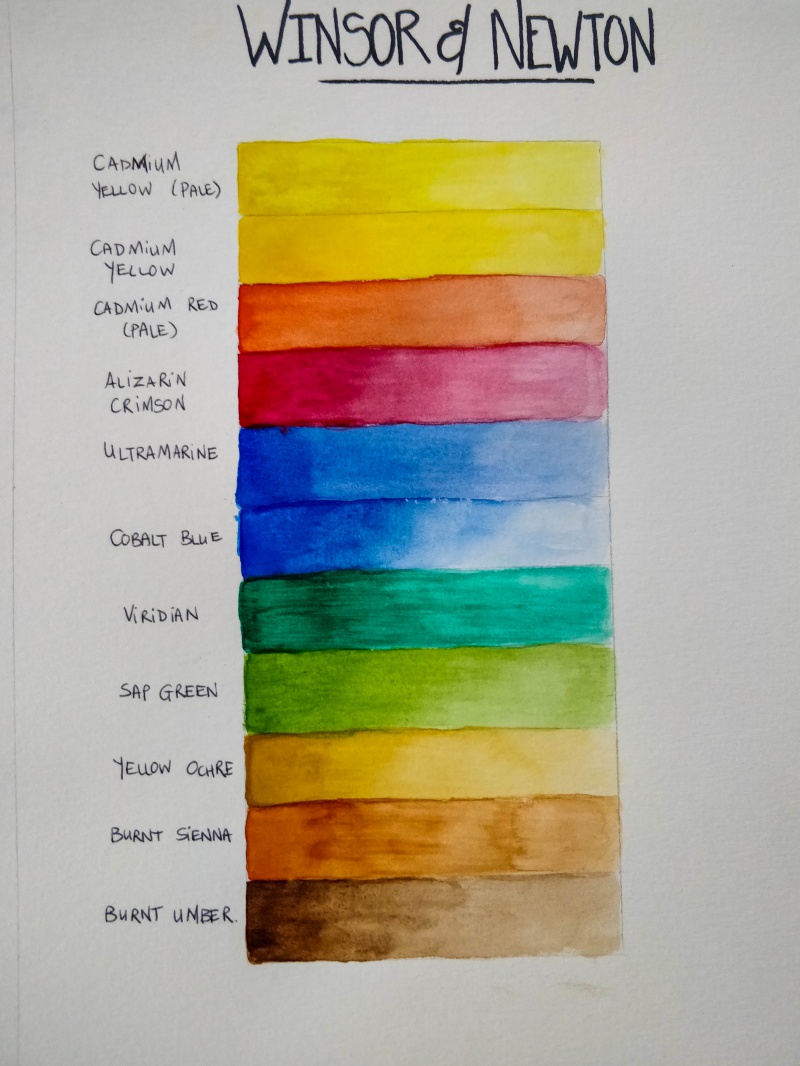 WINSOR & NEWTON
CADMIUM
YELLOW (PALE)
CADMIUM
YELLOW
CADMIUM RED
(PALE)
ALIZARIN
CRIMSON
ULTRAMARINE
COBALT BLUE
VIRIDIAN
SAP GREEN
YELLOW OCHRE
BURNT SIENNA
BURNT UMBER.